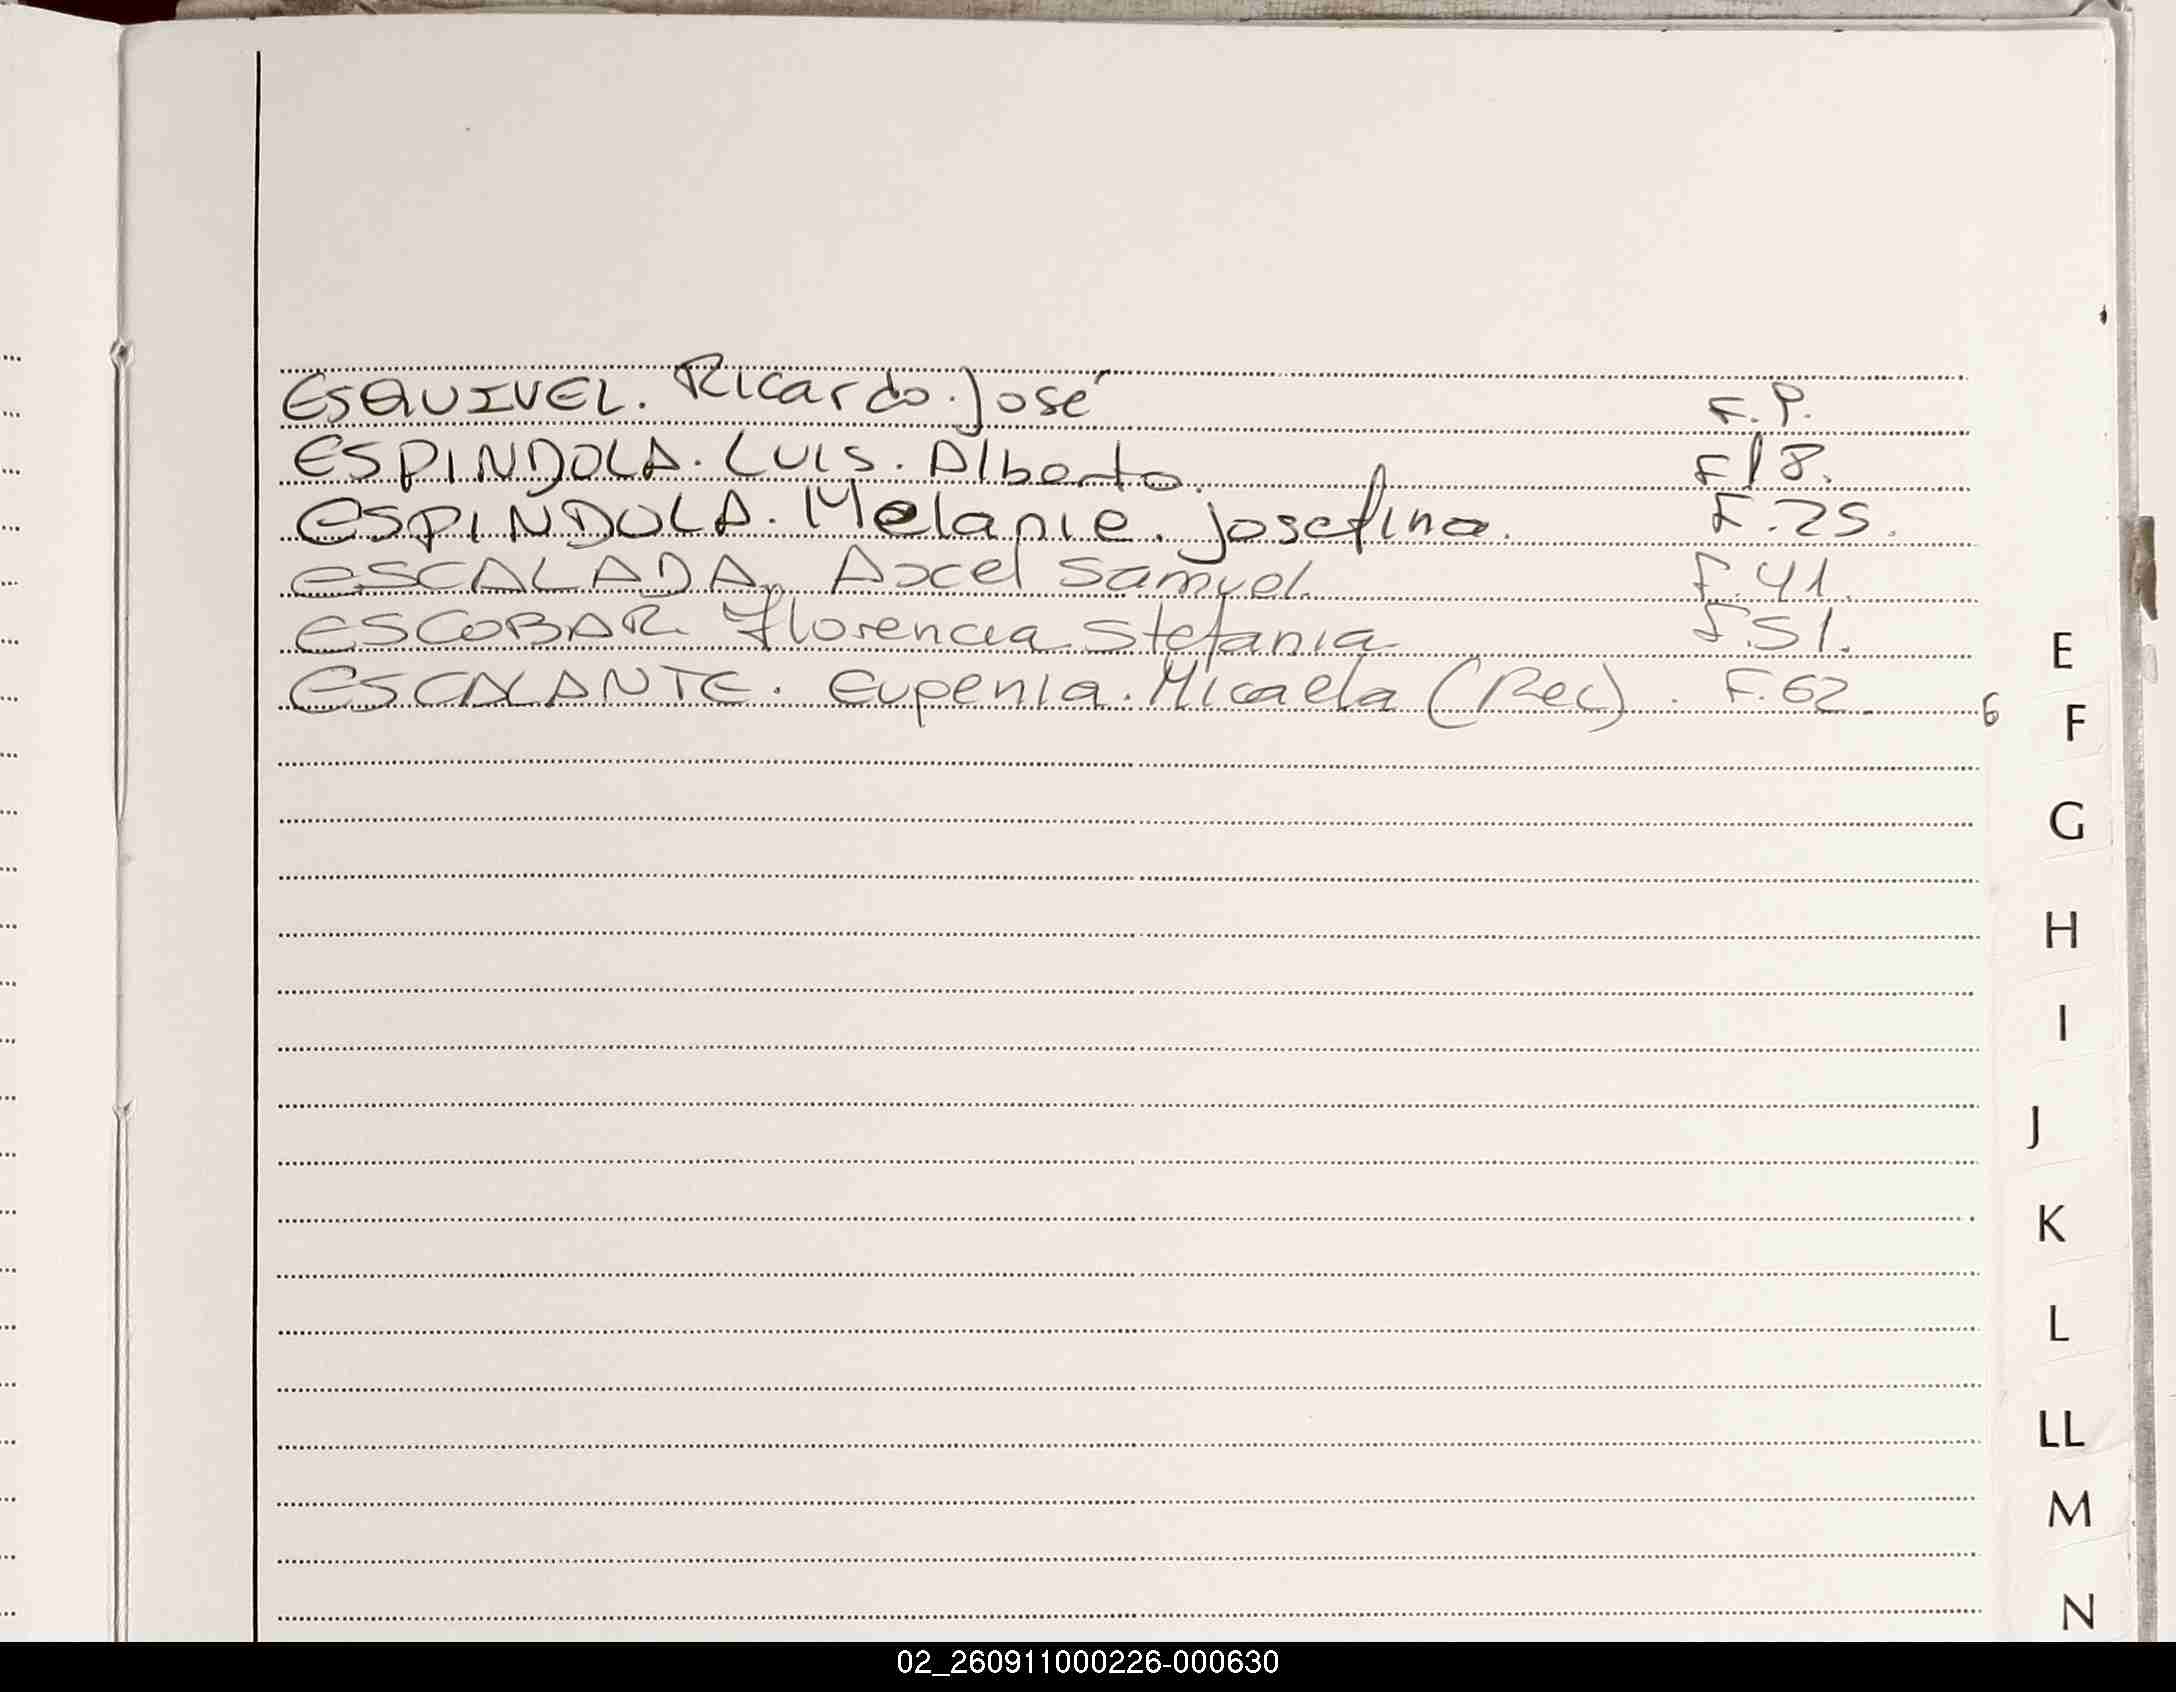 ESQUIVEL. Ricardo. José F. 9.
ESPINDOLA. Luis. Alberto. F 18.
ESPINDOLA. Melanie. Josefina. F. 25.
ESCALADA, Axcel Samuel. F. 41.
ESCOBAR. Florencia Stefania F. 51.
ESCALANTE. Eugenia. Micaela (Rec). F. 62.
6
E
F
G
H
I
J
K
L
LL
M
N
02_260911000226-000630